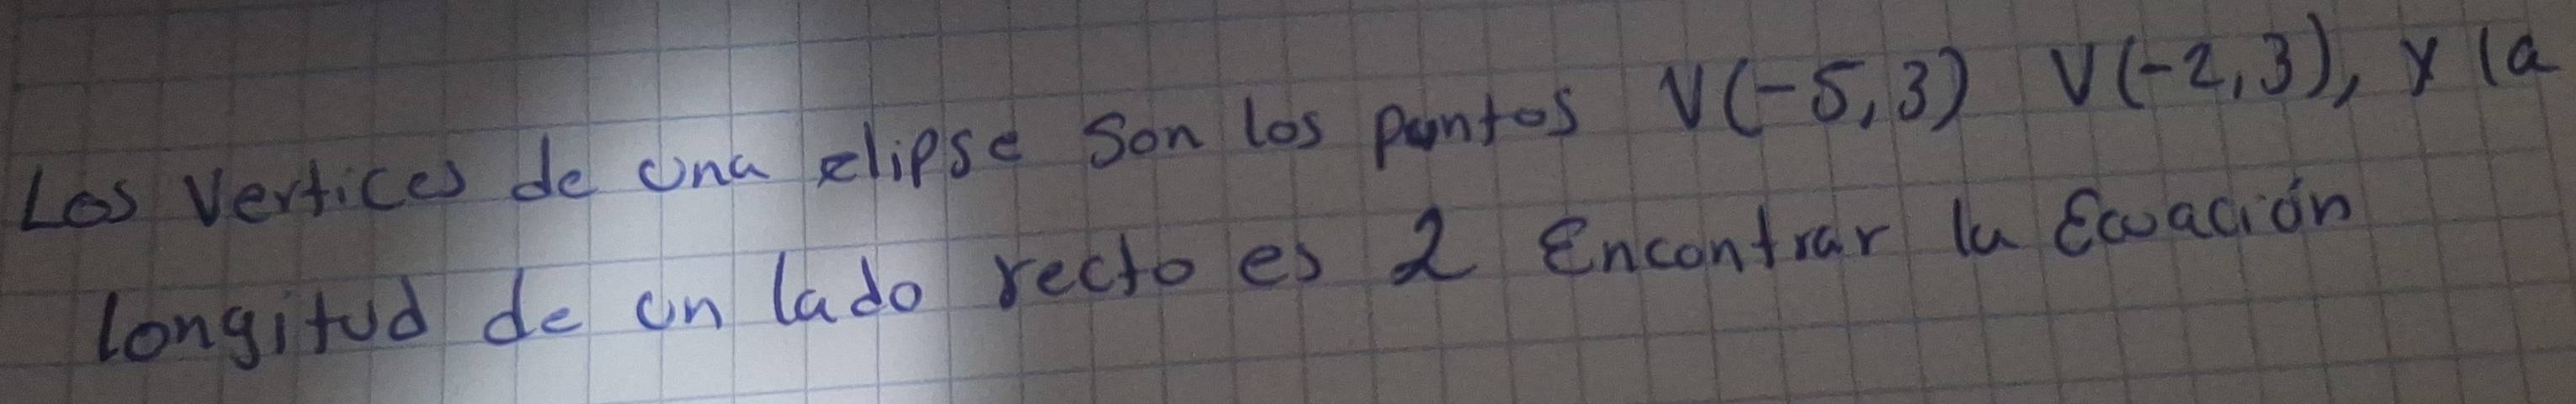 Los Vertices de una elipse Son los puntos V(-5,3) V(-2,3), y la
longitud de un lado recto es 2 Encontrar la Ecuación